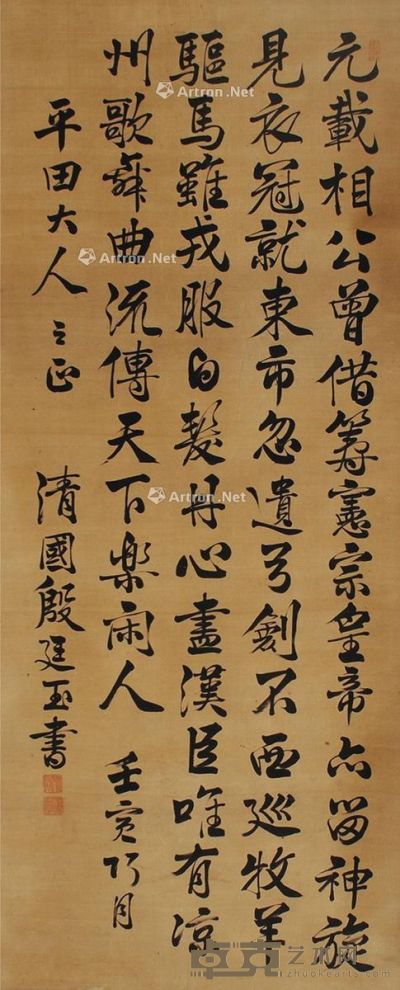 元載相公曾借箸憲宗皇帝亦留神旋
見衣冠就東市忽遺弓劍不西巡牧羊
驅馬雖戎服白髮丹心盡漢臣唯有涼
州歌舞曲流傳天下樂闲人 壬寅巧月
平田大人之正
清國殷廷玉書
Artron.Net
Artron.Net
Artron.Net
Artron.Net
Artron.Net
Artron.Net
卓克艺术网
www.zhuokearts.com